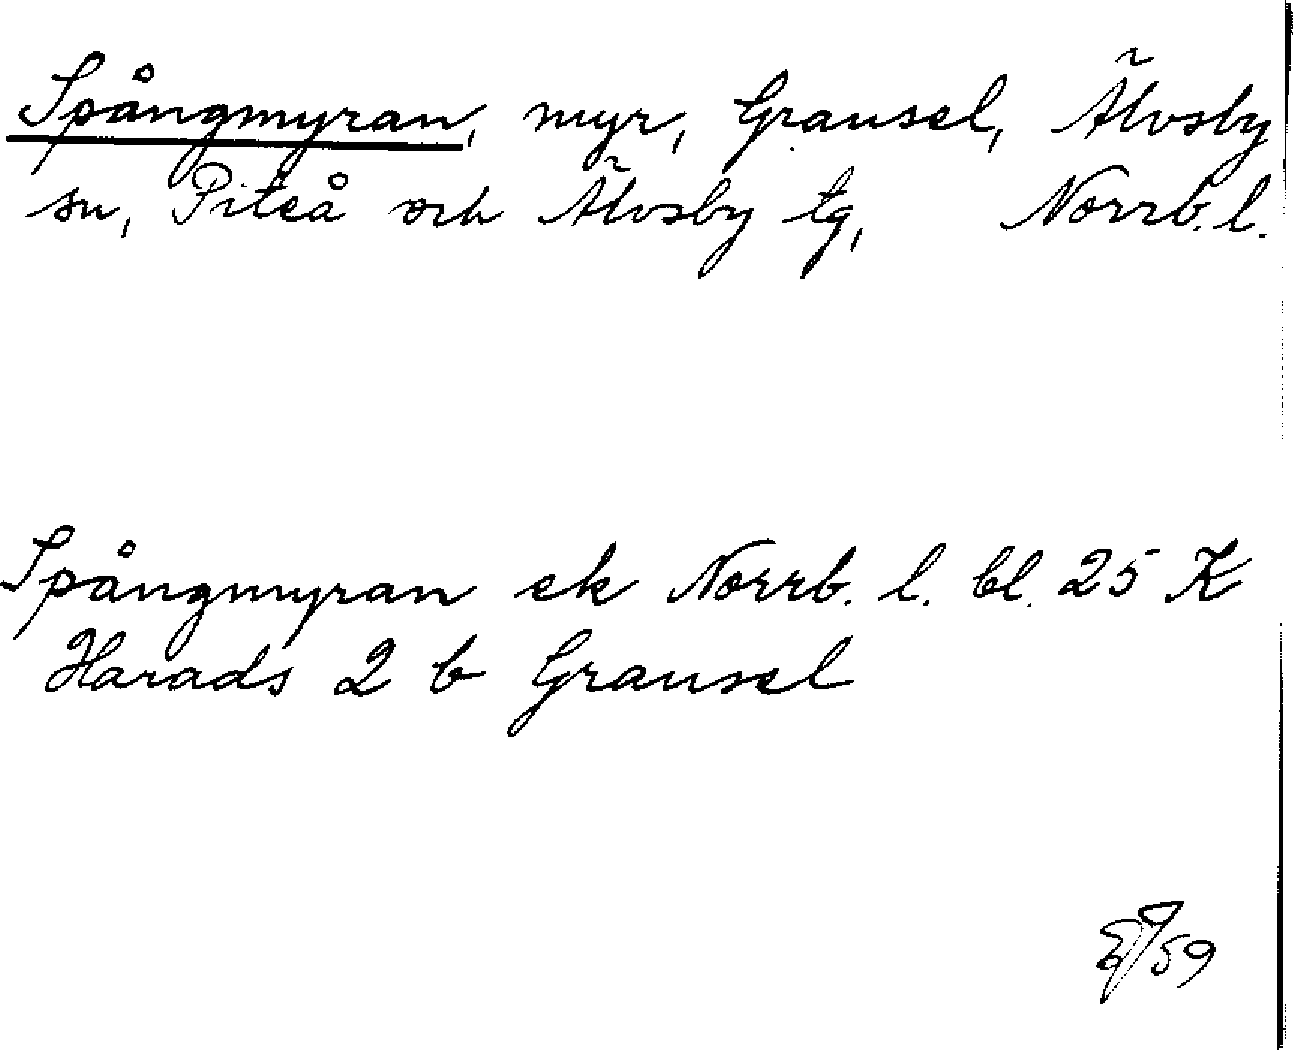 Spångmyran, myr, Grausel, Älvsby
sn, Piteå och Älvsby tg, Norrb. l.
Spångmyran ek Norrb. l. bl. 25 K
Harads 2 b Grausel
59